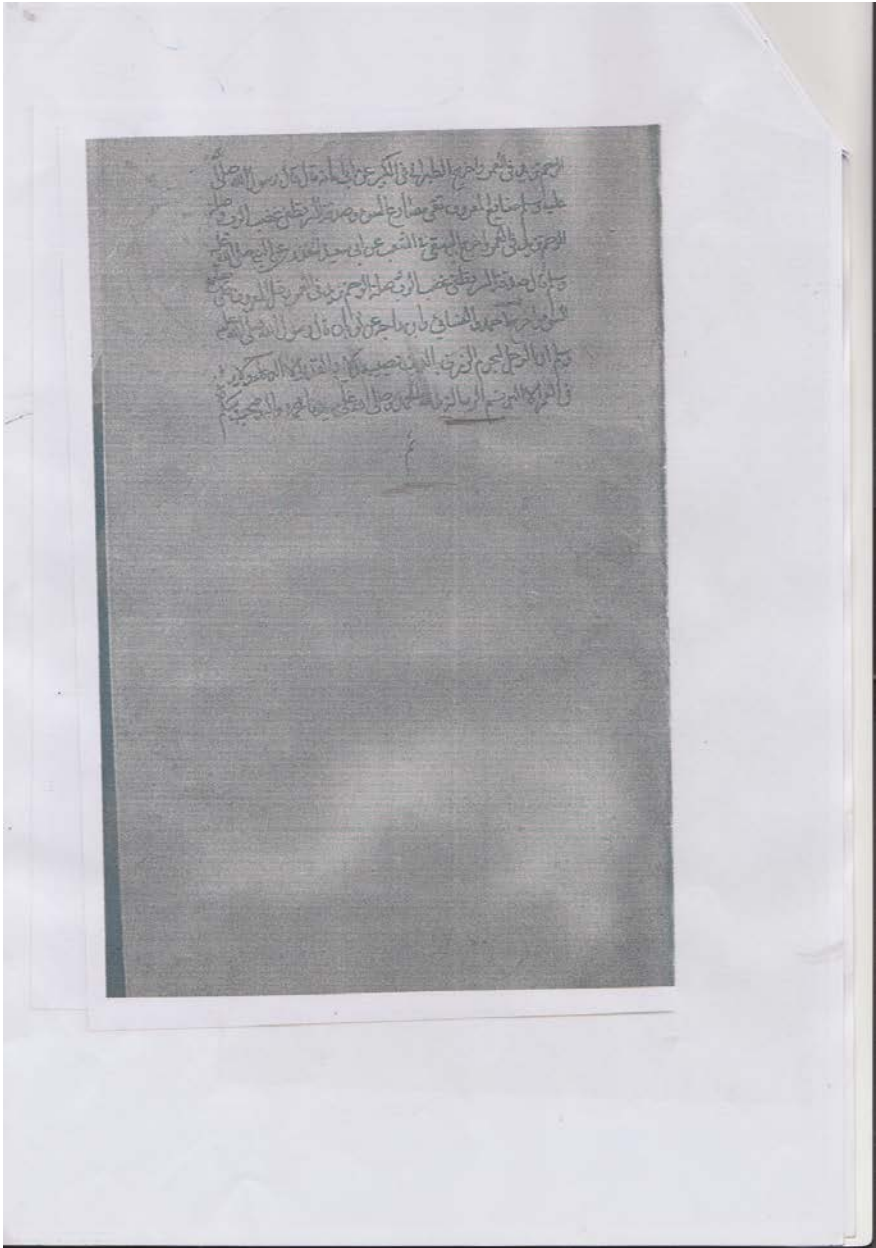 الرحم تزيد في العمر واخرج الطبراني في الكبير عن ابي امامة قال قال رسول الله صلى الله
عليه وسلم صنايع المعروف تقي مصارع السوء وصدقة السر تطفئ غضب الرب وصلة
الرحم تزيد في العمر واخرج البيهقي في الشعب عن ابي سعيد الخدري عن النبي صلى الله عليه
وسلم قال صدقة السر تطفئ غضب الرب وصلة الرحم تزيد في العمر وفعل المعروف يقي
السوء واخرج احمد والنسائي وابن ماجه عن ثوبان قال قال رسول الله صلى الله عليه
وسلم ان الرجل ليحرم الرزق بالذنب يصيبه ولا يرد القدر الا الدعاء ولا يزيد
في العمر الا البر تمت الرسالة وصلى الله على سيدنا محمد واله وصحبه وسلم
تم